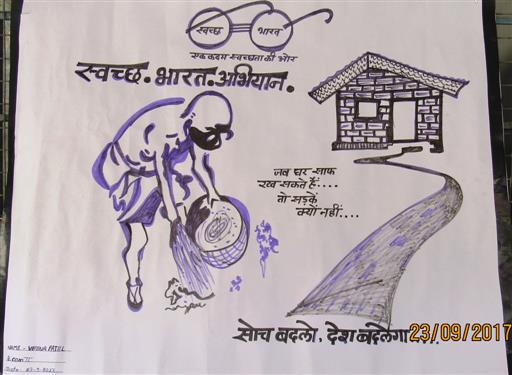 स्वच्छ भारत
एक कदम स्वच्छता की ओर
स्वच्छ. भारत. अभियान.
जब घर साफ
रख सकते हैं....
तो सड़कें
क्यों नहीं....
सोच बदलो, देश बदलेगा....
23/09/2017
NAME - PATIL
Date